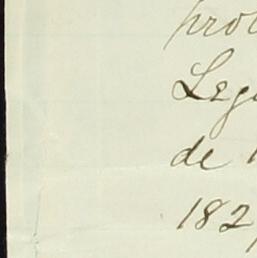 pro
Leg
de
182